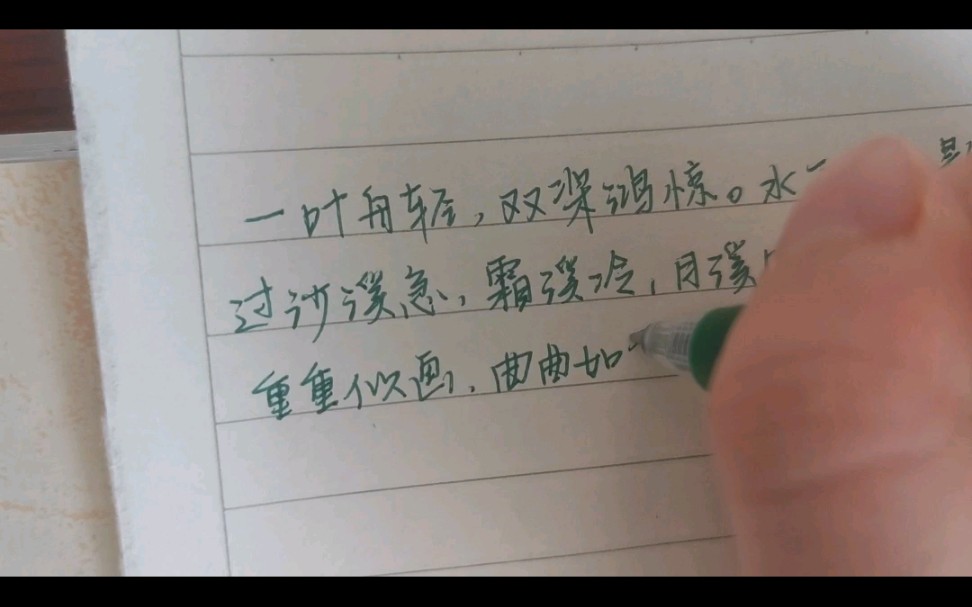 一叶舟轻,双桨鸿惊。水
过沙溪急,霜溪冷,月溪
重重似画,曲曲如